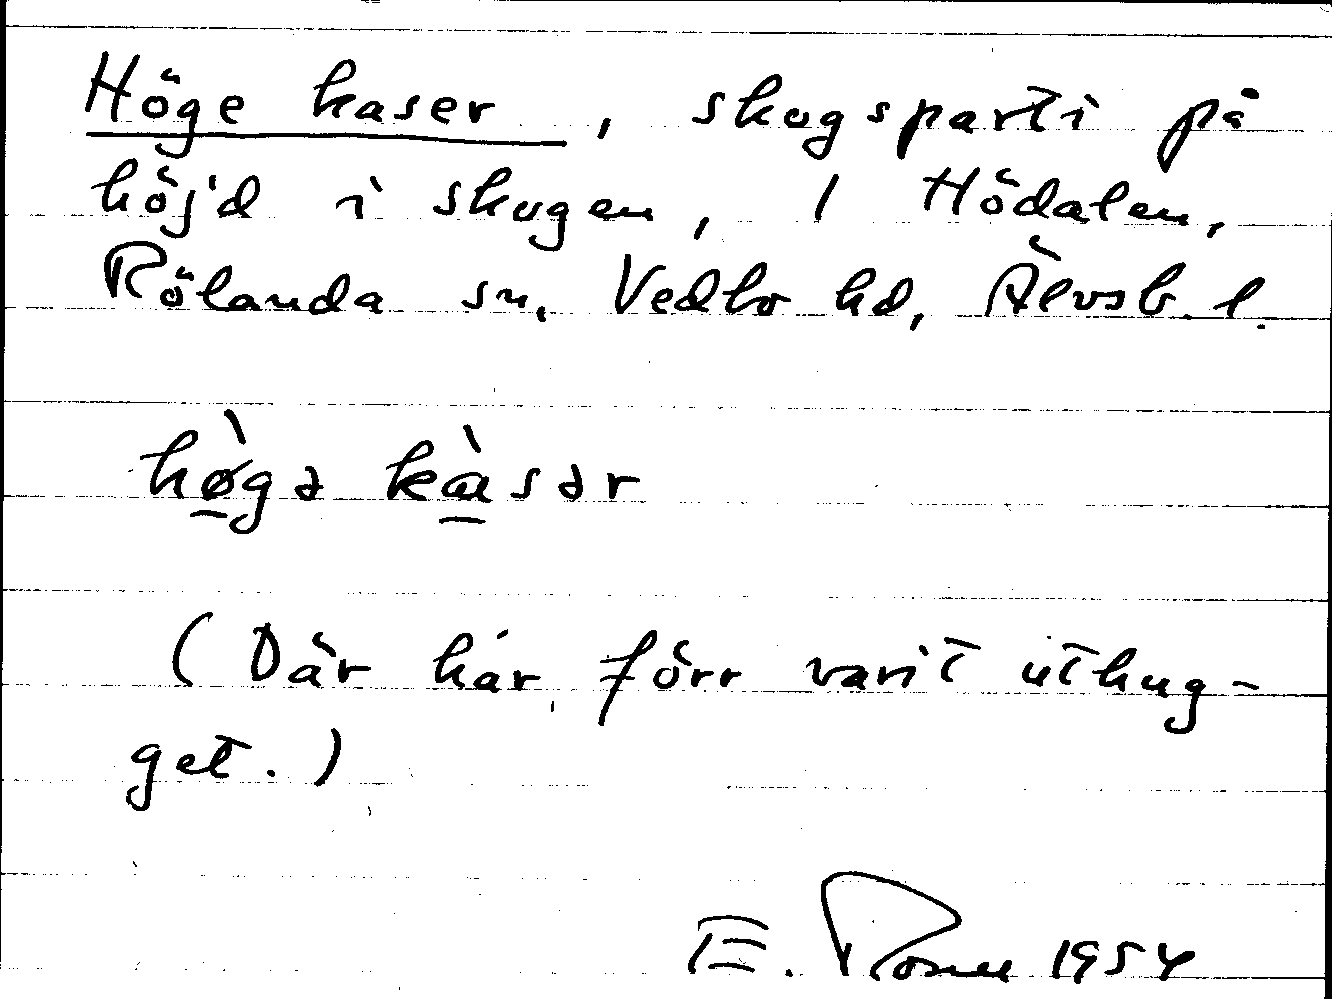 Höge kaser, skogsparti på
höjd i skogen, 1 Hödalen,
Rölanda sn, Vedbo hd, Älvsb. l.
hø̀gə kàsər
(Där har förr varit uthug-
get.)
E. 1954